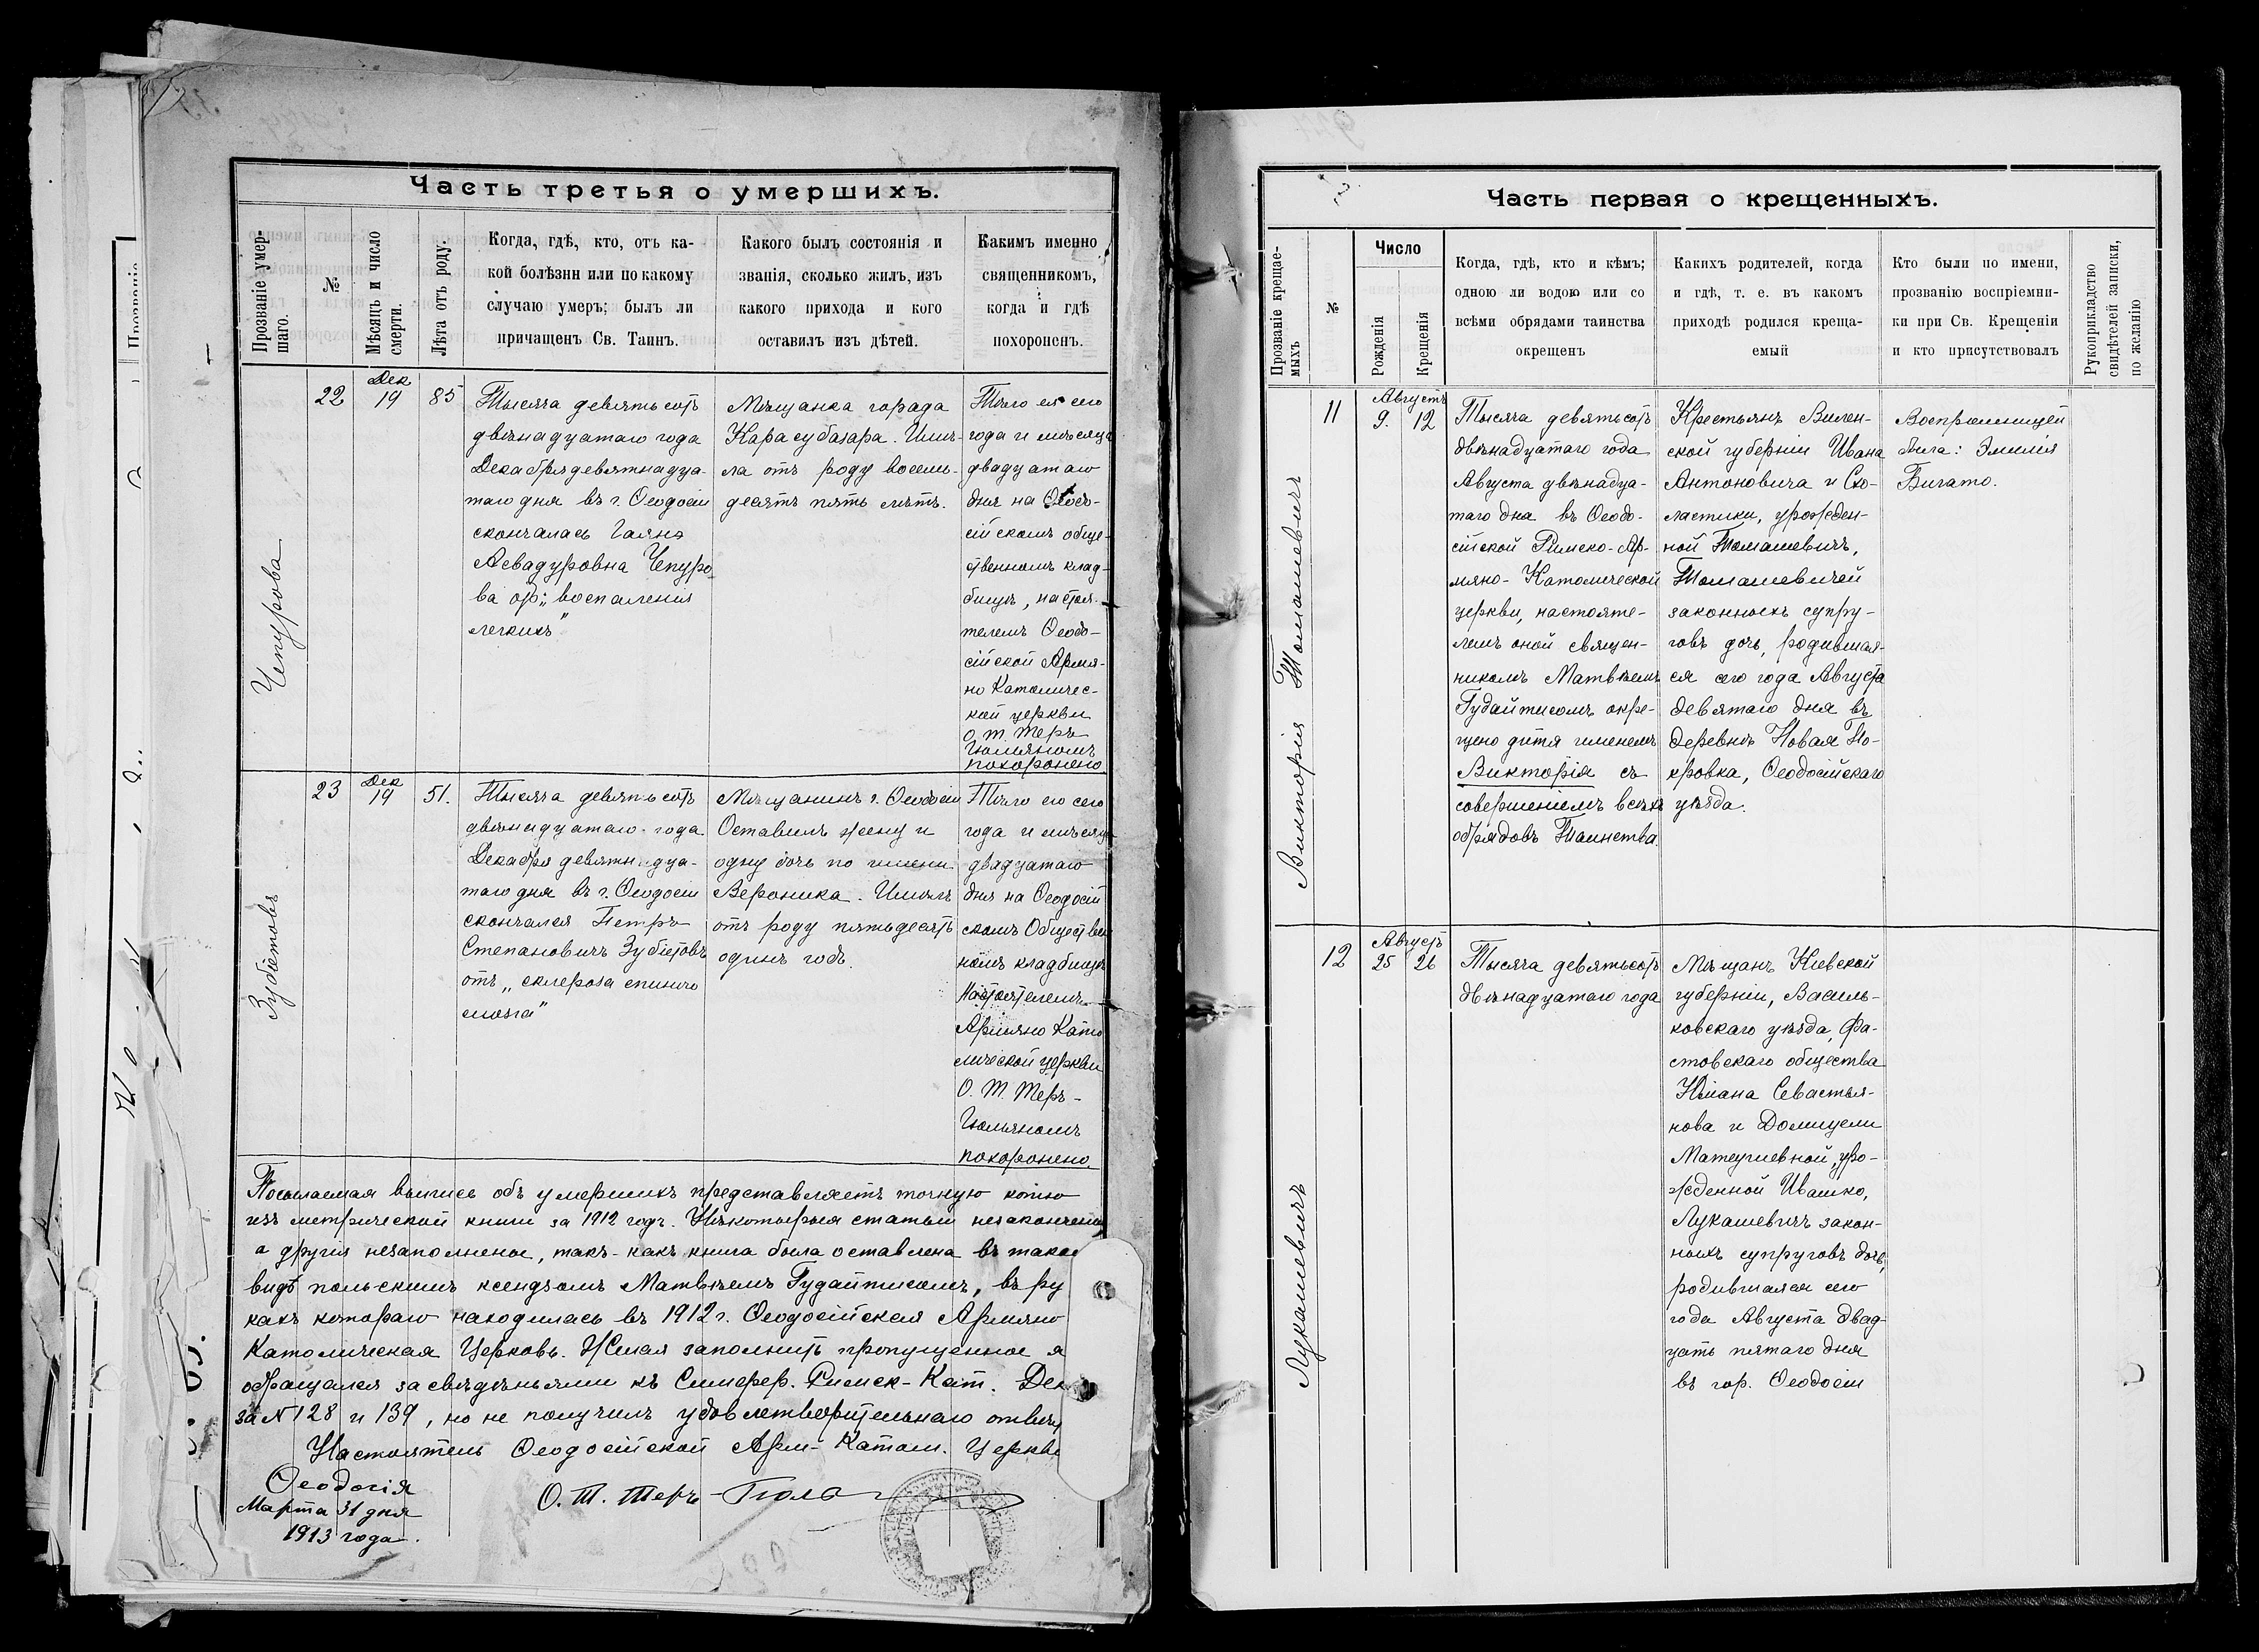 Часть третья о умершихъ.
Прозваніе умер-
шаго.
№
Мѣсяцъ и число
смерти.
Лѣта отъ роду.
Когда, гдѣ, кто, отъ ка-
кой болѣзни или по какому
случаю умеръ; былъ ли
причащенъ Св. Таинъ.
Какого былъ состоянія и
званія, сколько жилъ, изъ
какого прихода и кого
оставилъ изъ дѣтей.
Какимъ именно
священникомъ,
когда и гдѣ
похороненъ.
Чепурова
22
Дек
19
85
Тысяча девятьсотъ
двѣнадцатаго года
Декабря девятнадца-
таго дня въ г. Ѳеодосіи
скончалась Гаянэ
Асвадуровна Чепуро-
ва ор: „воспаленія
легкихъ"
Мѣщанка города
Карасубазара. Имѣ-
ла отъ роду восемь-
десятъ пять лѣтъ.
Тѣло ея сего
года и мѣсяца
двадцатаго
дня на Ѳеодо-
сійскомъ обще-
ственномъ клад-
бищѣ, настоя-
телемъ Ѳеодо-
сійской Армя-
но Католичес-
кой церкви
О. Т. Теръ
Гюльяномъ
похоронено
Зубіетовъ
23
Дек
19
51.
Тысяча девятьсотъ
двѣнадцатаго года
Декабря девятнадца-
таго дня въ г. Ѳеодосіи
скончался Петръ
Степановичъ Зубіетовъ
отъ „склероза спинно
мозга"
Мѣщанинъ г. Ѳеодосіи
Оставилъ жену и
одну дочь по имени
Вероника. Имѣлъ
отъ роду пятьдесятъ
одинъ годъ.
Тѣло его сего
года и мѣсяца
двадцатаго
дня на Ѳеодосій
скомъ Обществен
номъ кладбищѣ
Настоятелемъ
Армяно Като
лической церкви
О. Т. Теръ-
Гюльяномъ
похоронено.
Посылаемая выпись объ умершихъ представляетъ точную копію
изъ метрической книги за 1912 годъ. Нѣкоторыя статьи незакончены
а другія незаполнены, такъ-какъ книга была оставлена въ тако
видѣ польскимъ ксендзомъ Матвѣемъ Гудайтисомъ, въ ру
кахъ котораго находилась въ 1912 г. Ѳеодосійская Армяно
Католическая Церковь. Желая заполнить пропущенное я
обращался за свѣдѣньями къ Симфер. Римск-Кат. Дек
за N 128 и 139, но не получилъ удовлетворительнаго отвѣт
Настоятель Ѳеодосійской Арм-Катол. Церкви
Ѳеодосія
Марта 31 дня
1913 года.
О. Т. Теръ-Гюль
Часть первая о крещенныхъ.
Прозваніе крещае-
мыхъ
№
Число
Рожденія
Крещенія
Когда, гдѣ, кто и кѣмъ;
одною ли водою или со
всѣми обрядами таинства
окрещенъ
Какихъ родителей, когда
и гдѣ, т. е. въ какомъ
приходѣ родился креща-
емый
Кто были по имени,
прозванію воспріемни-
ки при Св. Крещеніи
и кто присутствовалъ
Рукоприкладство
свидѣтелей записки,
по желанію
Викторія Томашевичъ
11
Августъ
9.
12
Тысяча девятьсотъ
двѣнадцатаго года
Августа двѣнадца-
таго дна въ Ѳеодо-
сійской Римско-Ар-
мяно-Католической
церкви, настояте-
лемъ оной священ-
никомъ Матвѣемъ
Гудайтисомъ окре-
щено дитя именемъ
Викторія съ
совершеніемъ всѣхъ
обрядовъ Таинства.
Крестьянъ Вилен-
ской губерніи Ивана
Антоновича и Схо-
ластики, урожден-
ной Томашевичъ,
Томашевичей
законныхъ супру-
говъ дочь, родившая-
ся сего года Августа
девятаго дня въ
деревнѣ Новая По-
кровка, Ѳеодосійскаго
уѣзда.
Воспріемницей
была: Эмилія
Бигато.
Лукашевичъ
12
Августъ
25
26
Тысяча девятьсотъ
двѣнадцатаго года
Мѣщанъ Кіевской
губерніи, Василь-
ковскаго уѣзда, Фа-
стовскаго общества
Юліана Севастья-
нова и Домицели
Матеушевной, уро-
жденной Ивашко,
Лукашевичъ закон-
ныхъ супруговъ дочь,
родившаяся сего
года Августа двад-
цать пятаго дня
въ гор. Ѳеодосіи